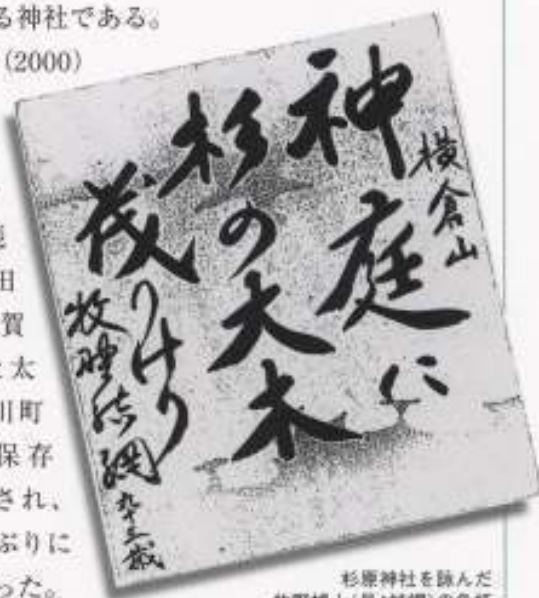 る神社である。
(2000)
田
賀
太
川町
保存
され、
ぶりに
った。
横倉山
神庭に
杉の大木
茂りけり
牧野結網 九十三歳
杉原神社を詠んだ